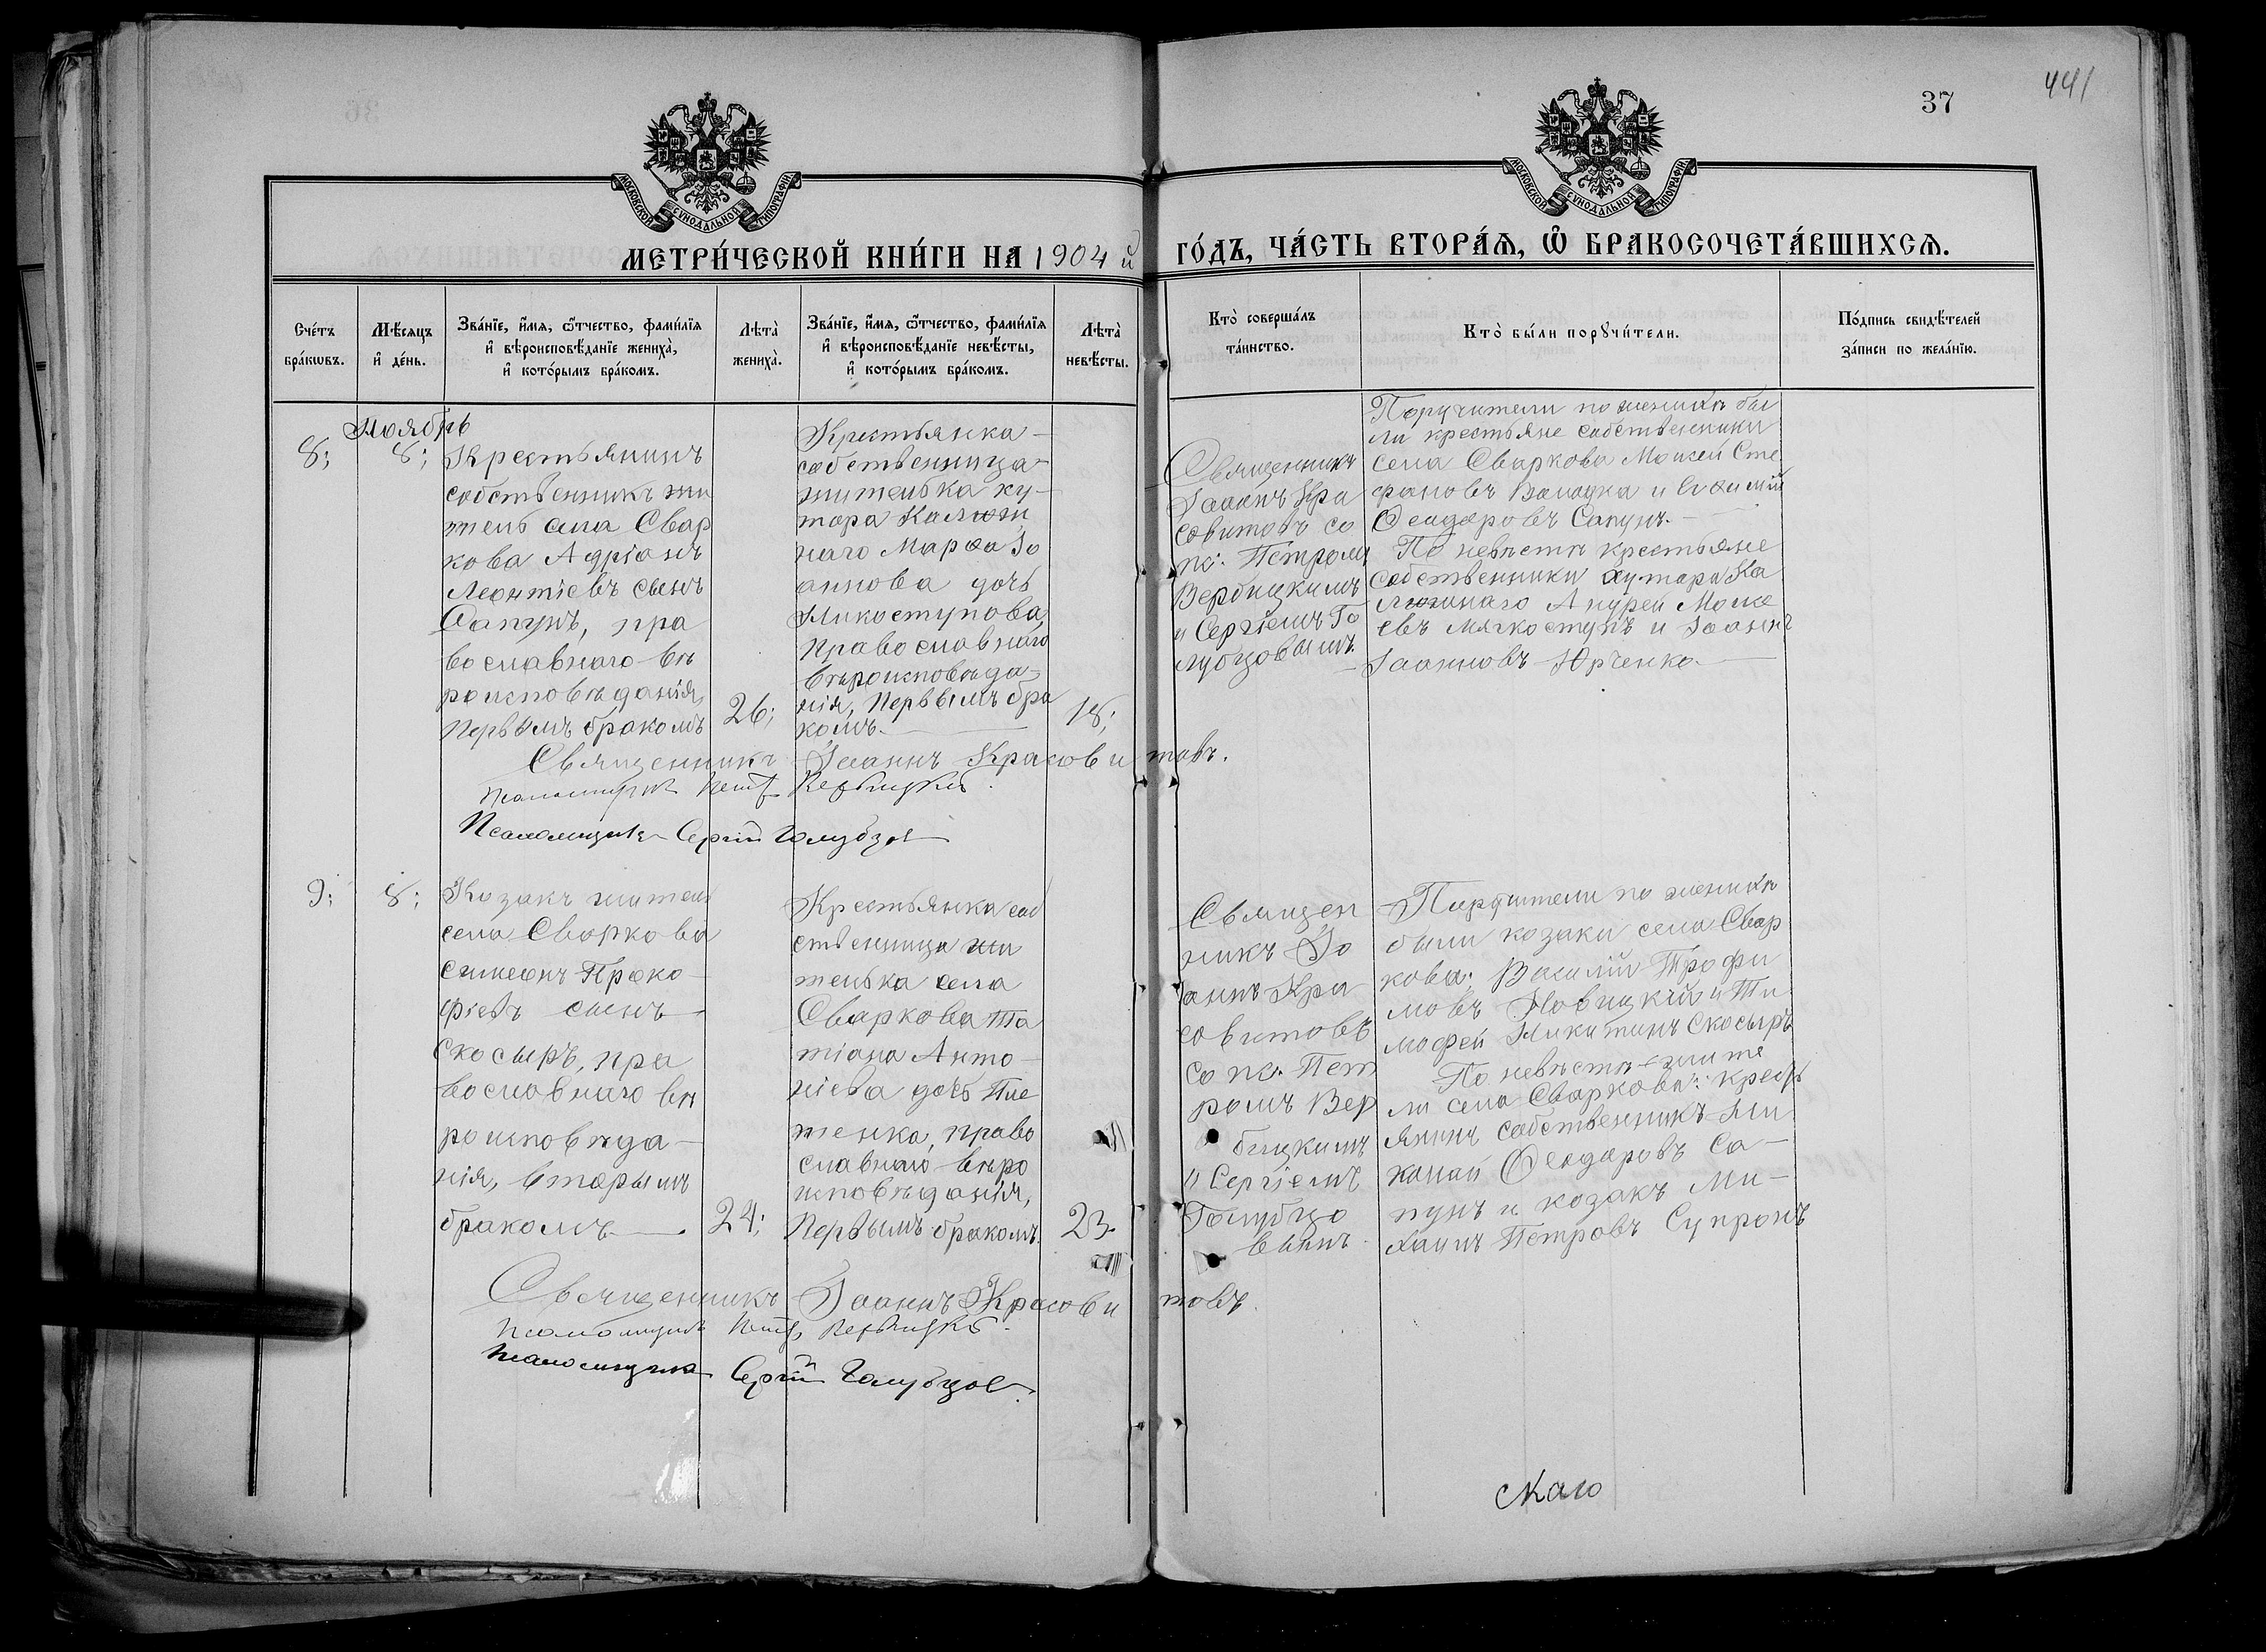 37
441
МОСКОВСКОЙ СѴНОДАЛЬНОЙ ТИПОГРАФІИ
МОСКОВСКОЙ СѴНОДАЛЬНОЙ ТИПОГРАФІИ
МЕТРИ́ЧЕСКОЙ КНИ́ГИ НА 1904 й
ГО́ДЪ, ЧА́СТЬ ВТОРА́Ѧ, Ѽ БРАКОСОЧЕТА́ВШИХСѦ.
Сче́тъ
бра́кѡвъ.
Мѣ́сяцъ
и҆ де́нь.
Зва́нїе, и҆́мѧ, ѻ҆́тчество, фами́лїѧ
и҆ вѣроисповѣ́данїе жениха̀,
и҆ кото́рымъ бра́комъ.
Лѣта̀
жениха̀.
Зва́нїе, и҆́мѧ, ѻ҆́тчество, фами́лїѧ
и҆ вѣроисповѣ́данїе невѣ́сты,
и҆ кото́рымъ бра́комъ.
Лѣта̀
невѣ́сты.
Кто̀ соверша́лъ
та́инство.
Кто̀ бы́ли порꙋчи́тели.
По́дпись свидѣ́телей
за́писи по жела́нїю.
Ноябрь
8;
8;
Крестьянинъ
собственникъ жи
тель села Свар
кова Адріанъ
Леонтіевъ сынъ
Сапунъ, пра
вославнаго вѣ
роисповѣданія,
первымъ бракомъ
26;
Крестьянка
собственница
жителька ху-
тора Калюж
наго Марѳа Іо
аннова дочь
Микоступова,
православнаго
вѣроисповѣда-
нія, первымъ бра
комъ.
18;
Священникъ
Іоаннъ Кра
совитовъ со
пс. Петромъ
Вербицкимъ
и Сергіемъ Го
лубцовымъ.
Поручители по женихѣ бы
ли крестьяне собственники
села Сваркова Моисей Сте
фановъ и Евѳимій
Ѳеодоровъ Сапунъ.
По невѣстѣ крестьяне
собственники хутора Ка
люжнаго Андрей Моисе
евъ Мягкоступъ и Іоаннъ
Іоанновъ Юрченко.
Священникъ Іоаннъ Красовитовъ.
Псаломщикъ Петръ Вербицкій.
Псаломщикъ Сергій Голубцов
9;
8;
Козакъ житель
села Сваркова
Симеонъ Проко
фіевъ сынъ
Скосыръ, пра
вославнаго вѣ
роисповѣда-
нія, вторымъ
бракомъ.
24;
Крестьянка соб
ственница жи
телька села
Сваркова Та
тіана Анто-
ніева дочь Пле
тенка, право
славнаго вѣро
исповѣданія,
первымъ бракомъ.
23.
Священ
никъ Іо
аннъ Кра
совитовъ
со пс. Пет
ромъ Вер
бицкимъ
и Сергіемъ
Голубцо
вымъ.
Поручители по женихѣ
были козаки села Свар
кова: Василій Трофи
мовъ Новицкій и Ти
мофей Никитинъ Скосыръ
По невѣстѣ жите
ли села Сваркова: кресть
янинъ собственникъ Ни
колай Ѳеодоровъ Са-
пунъ и козакъ Ми-
хаилъ Петровъ Супронъ
Священникъ Іоаннъ Красовитовъ.
Псаломщикъ Петръ Вербицкій.
Псаломщикъ Сергій Голубцов.